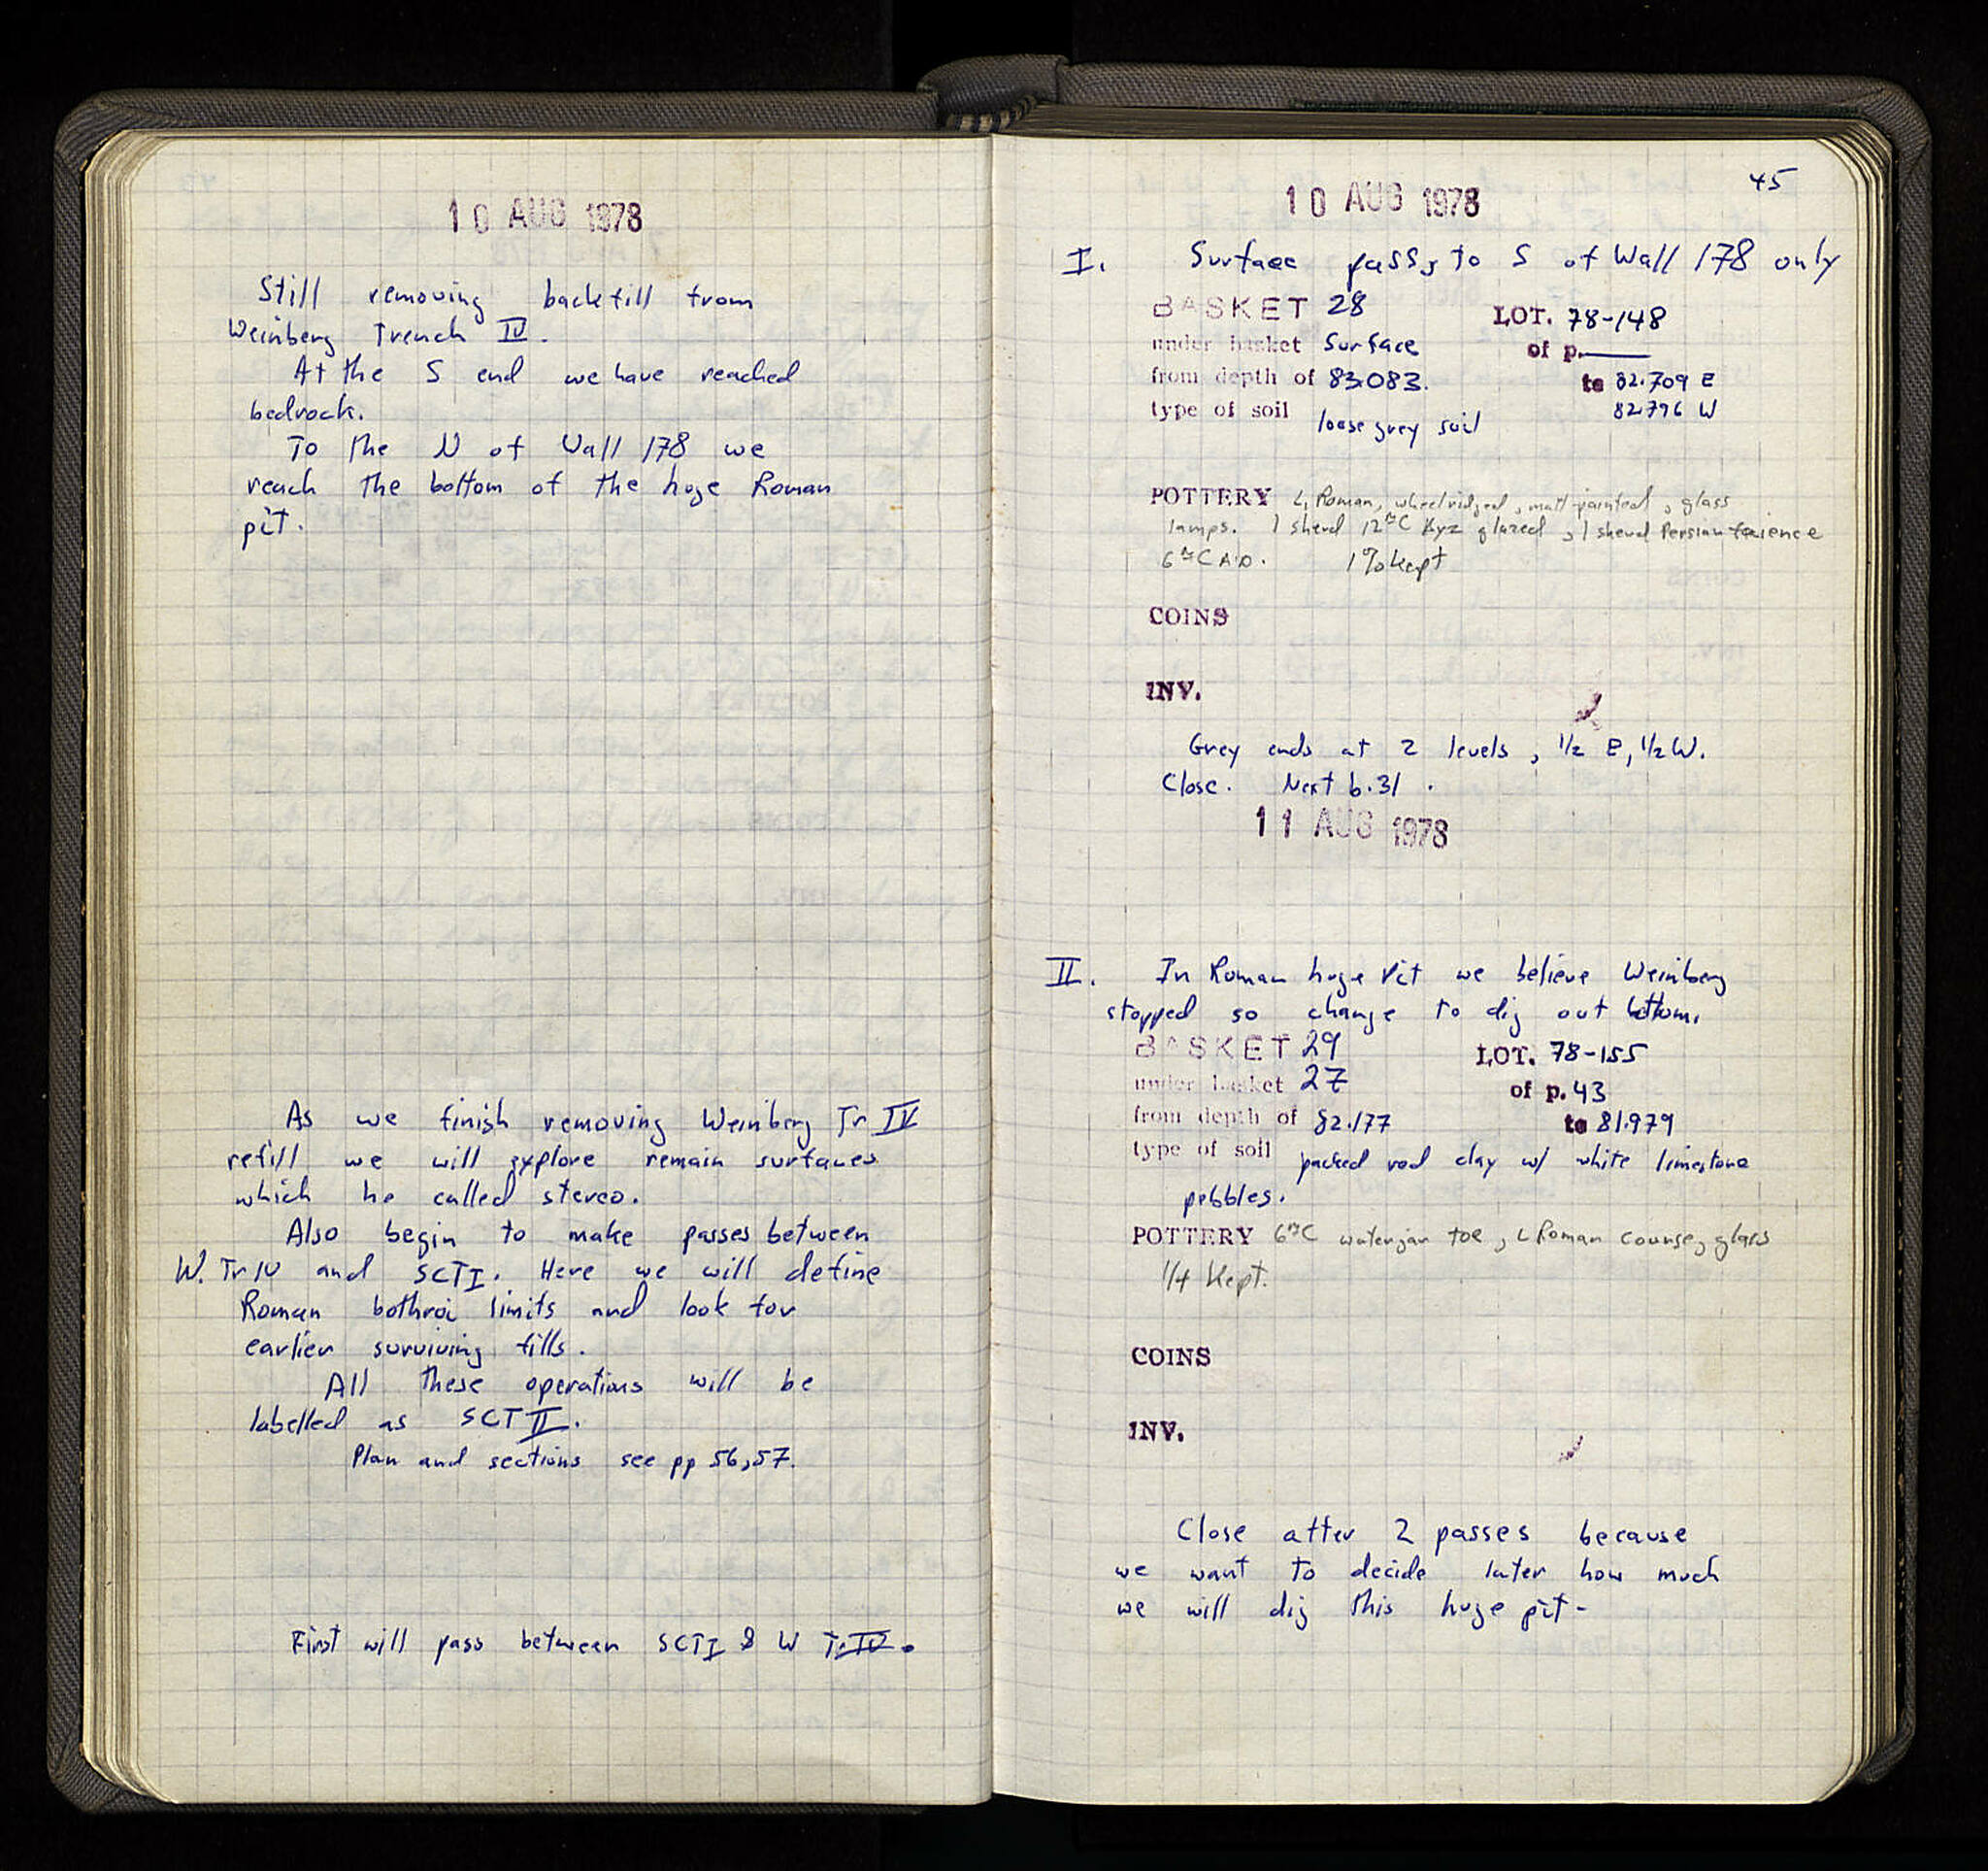 10 AUG 1978
Still removing backfill from
Weinberg Trench IV.
At the S end we have reached
bedrock.
To the N of Wall 178 we
reach the bottom of the huge Roman
pit.
As we finish removing Weinberg Tr IV
refill we will explore remain surfaces
which he called stereo.
Also begin to make passes between
W. Tr IV and SCT I. Here we will define
Roman bothroi limits and look for
earlier surviving fills.
All these operations will be
labelled as SCT II.
Plan and sections see pp 56,57.
First will pass between SCT I & W Tr IV.
45
10 AUG 1978
I. Surface pass, to S of Wall 178 only
BASKET 28 LOT. 78-148
under basket Surface of p.
from depth of 83.083. to 82.709 E
82.796 W
type of soil loose grey soil
POTTERY L. Roman, wheelridged, matt-painted, glass
lamps. 1 sherd 12thC Byz glazed, 1 sherd Persian faience
6thC A.D. 1% kept
COINS
INV.
Grey ends at 2 levels, 1/2 E, 1/2 W.
Close. Next b. 31.
11 AUG 1978
II. In Roman huge Pit we believe Weinberg
stopped so change to dig out bottom.
BASKET 29 LOT. 78-155
under basket 27 of p. 43
from depth of 82.177 to 81.979
type of soil packed red clay w/ white limestone
pebbles.
POTTERY 6thC waterjar toe, L Roman course, glass
1/4 kept.
COINS
INV.
Close after 2 passes because
we want to decide later how much
we will dig this huge pit-